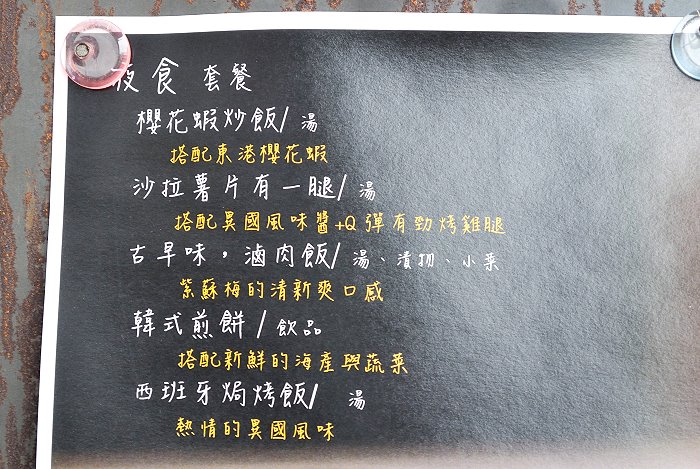 夜食 套餐
櫻花蝦炒飯/ 湯
搭配東港櫻花蝦
沙拉薯片有一腿/ 湯
搭配異國風味醬+Q彈有勁烤雞腿
古早味,滷肉飯/ 湯、漬物、小菜
紫蘇梅的清新爽口感
韓式煎餅/飲品
搭配新鮮的海產與蔬菜
西班牙焗烤飯/ 湯
熱情的異國風味